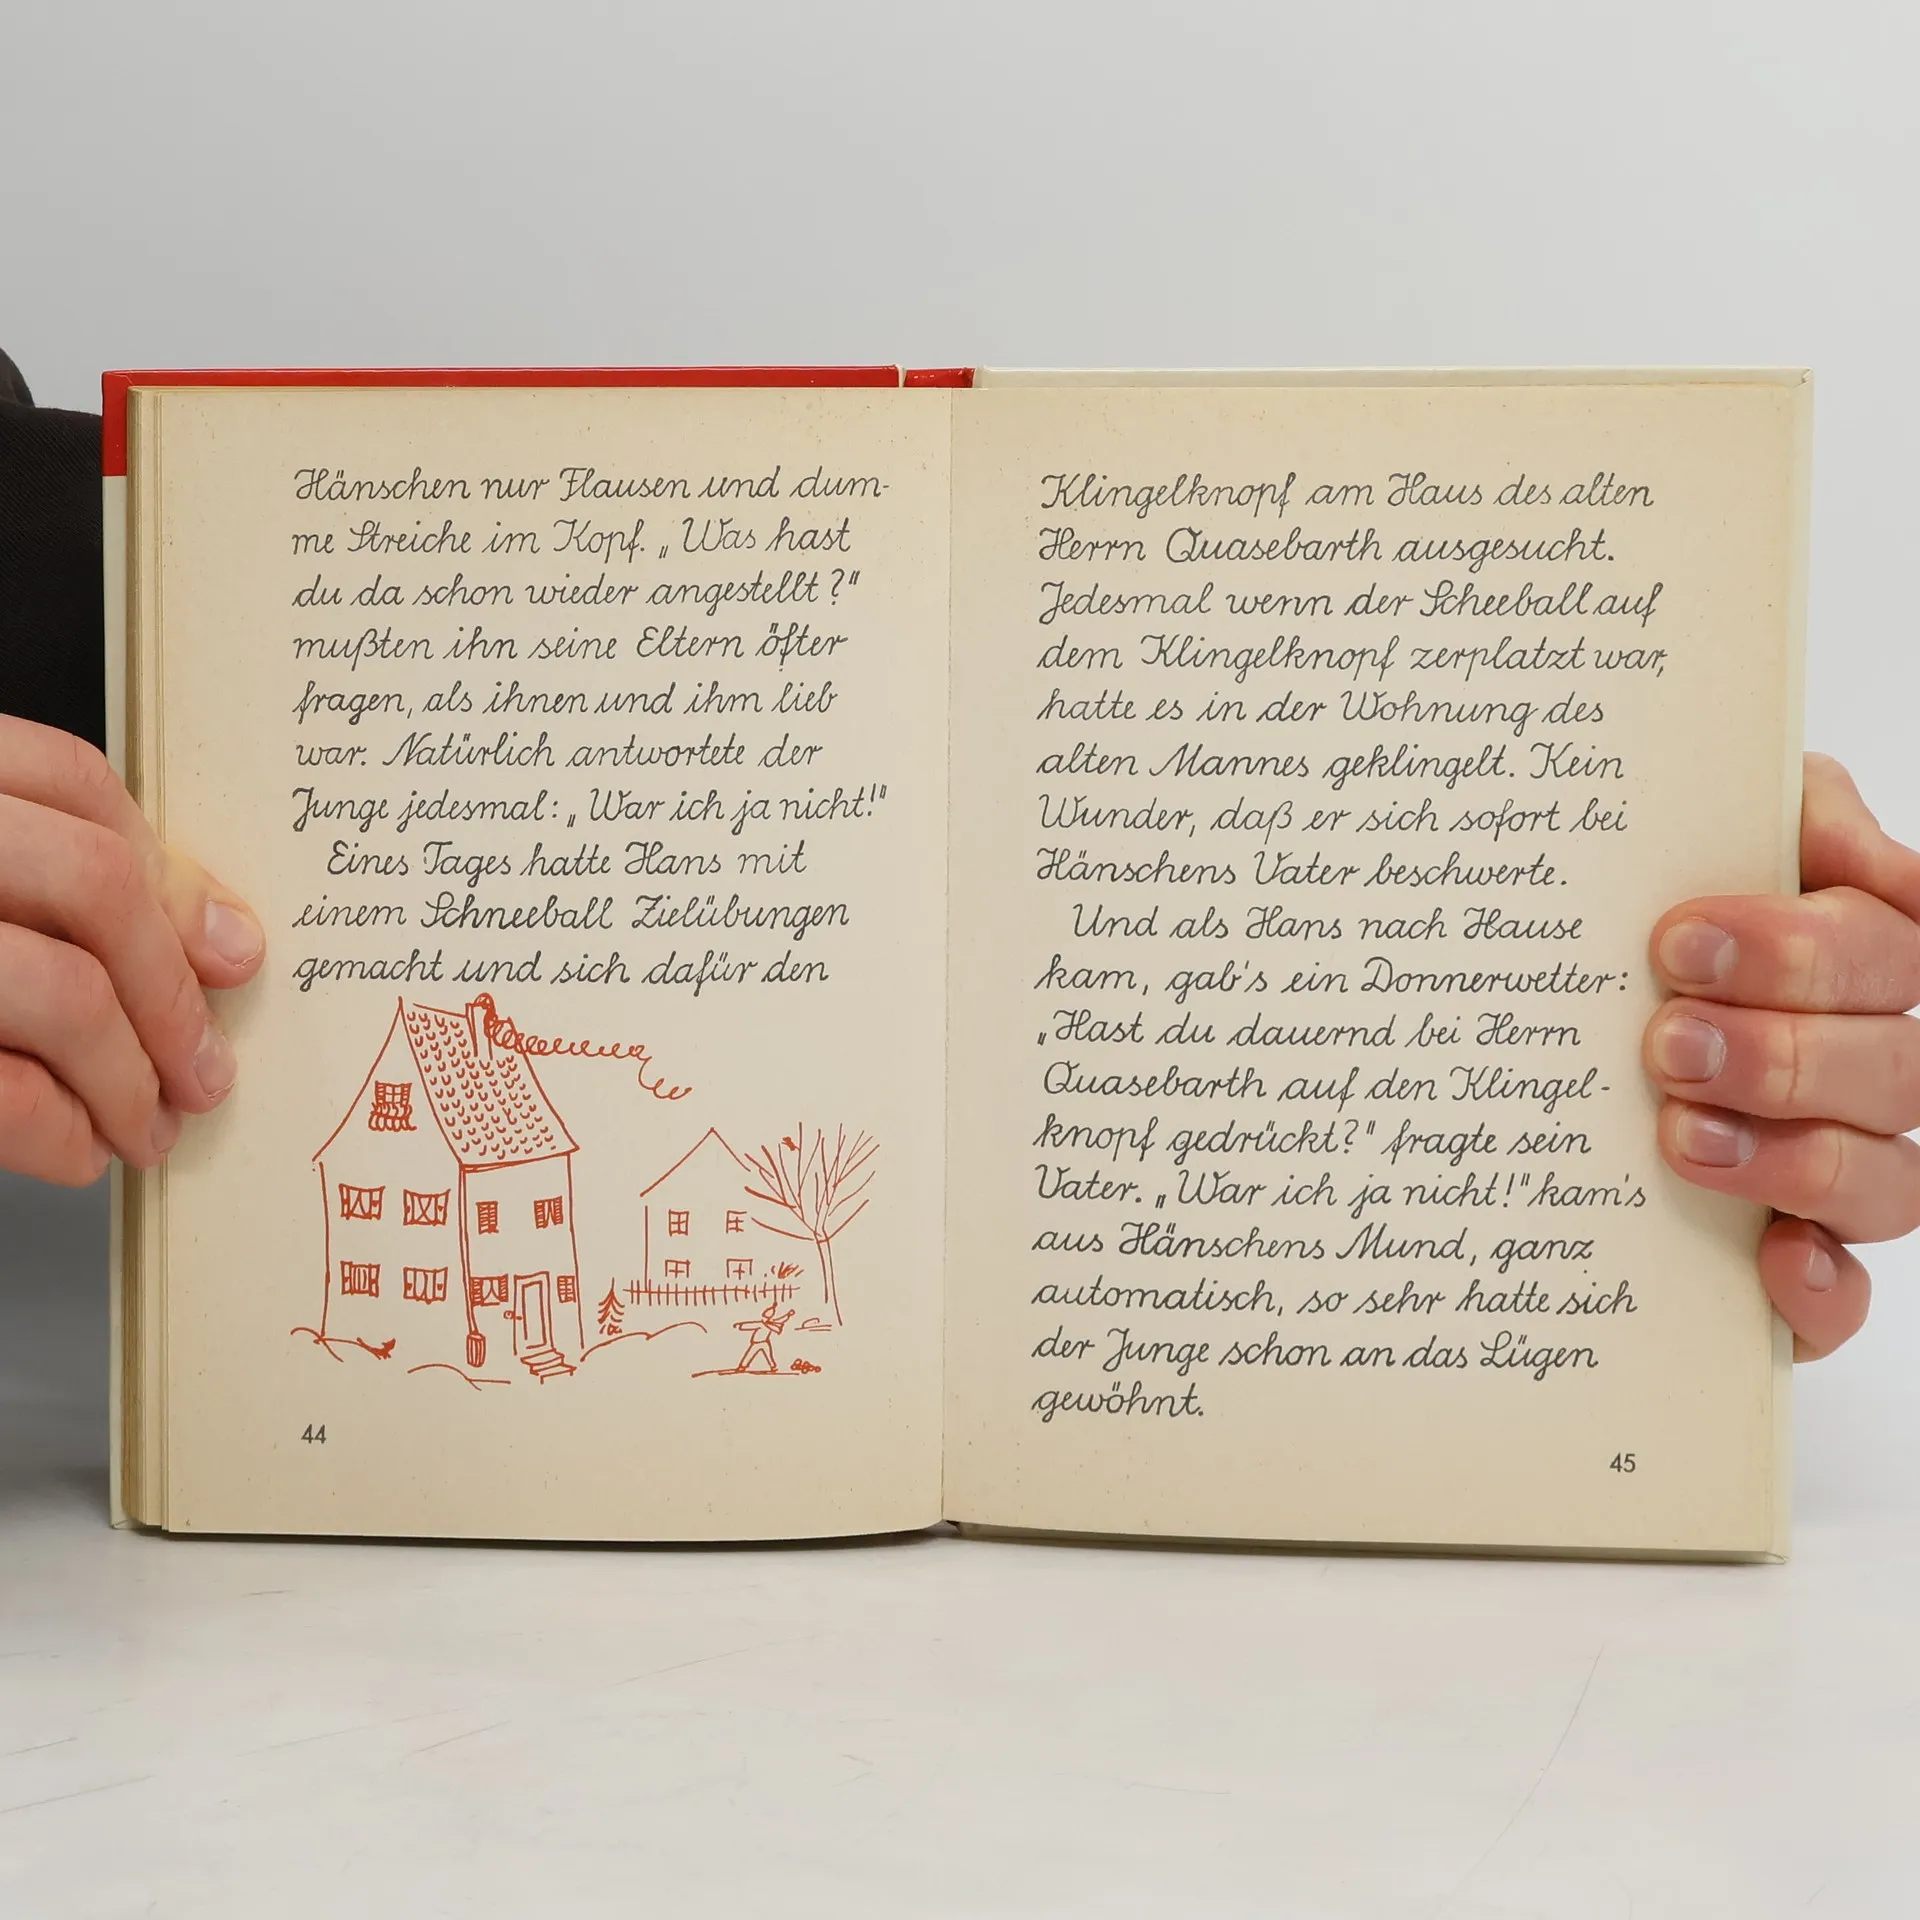 Hänschen nur Flausen und dum-
me Streiche im Kopf. „Was hast
du da schon wieder angestellt?"
mußten ihn seine Eltern öfter
fragen, als ihnen und ihm lieb
war. Natürlich antwortete der
Junge jedesmal: „War ich ja nicht!"
Eines Tages hatte Hans mit
einem Schneeball Zielübungen
gemacht und sich dafür den
44
Klingelknopf am Haus des alten
Herrn Quasebarth ausgesucht.
Jedesmal wenn der Scheeball auf
dem Klingelknopf zerplatzt war,
hatte es in der Wohnung des
alten Mannes geklingelt. Kein
Wunder, daß er sich sofort bei
Hänschens Vater beschwerte.
Und als Hans nach Hause
kam, gab's ein Donnerwetter:
„Hast du dauernd bei Herrn
Quasebarth auf den Klingel-
knopf gedrückt?" fragte sein
Vater. „War ich ja nicht!" kam's
aus Hänschens Mund, ganz
automatisch, so sehr hatte sich
der Junge schon an das Lügen
gewöhnt.
45